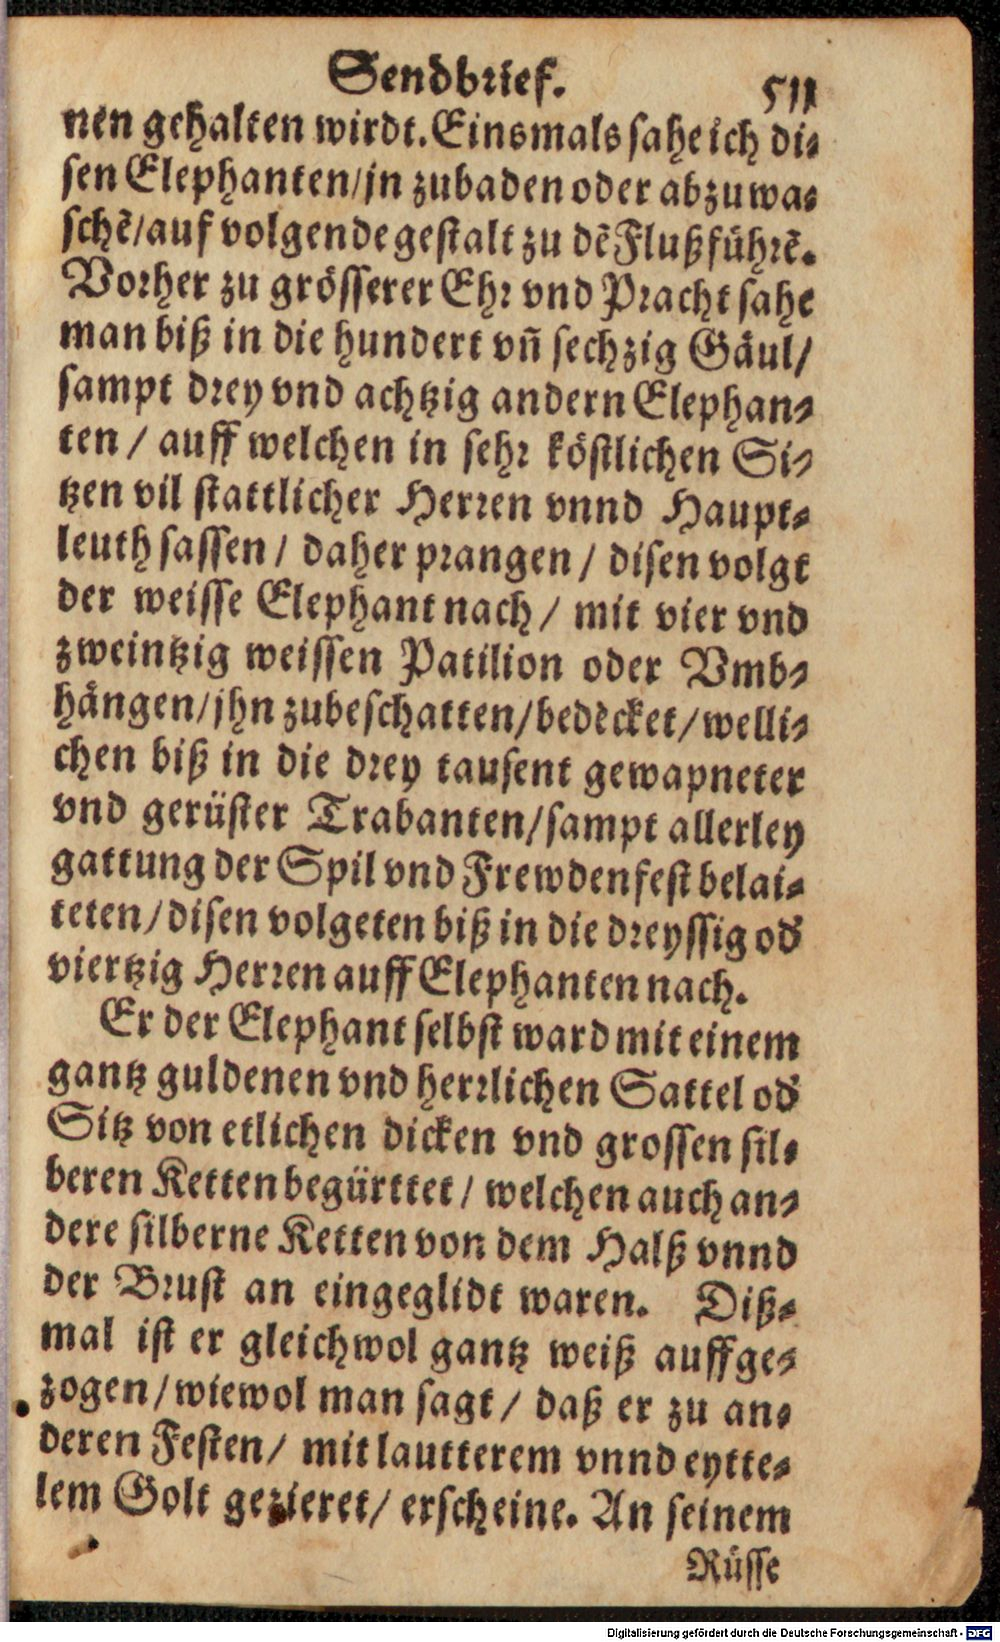 Sendbrief. 511
nen gehalten wirdt. Einsmals sahe ich di-
sen Elephanten/jn zubaden oder abzuwa-
schẽ/auf volgende gestalt zu dẽ Fluß führẽ.
Vorher zu grösserer Ehr vnd Pracht sahe
man biß in die hundert vñ sechzig Gäul/
sampt drey vnd achtzig andern Elephan-
ten / auff welchen in sehr köstlichen Si-
tzen vil stattlicher Herren vnnd Haupt-
leuth sassen / daher prangen / disen volgt
der weisse Elephant nach / mit vier vnd
zweintzig weissen Patilion oder Vmb-
hängen/jhn zubeschatten/bedècket/welli-
chen biß in die drey tausent gewapneter
vnd gerüster Trabanten/sampt allerley
gattung der Spil vnd Frewdenfest belai-
teten/disen volgeten biß in die dreyssig od'
viertzig Herren auff Elephanten nach.
Er der Elephant selbst ward mit einem
gantz guldenen vnd herrlichen Sattel od'
Sitz von etlichen dicken vnd grossen sil-
beren Ketten begürttet / welchen auch an-
dere silberne Ketten von dem Halß vnnd
der Brust an eingeglidt waren. Diß-
mal ist er gleichwol gantz weiß auffge-
zogen/wiewol man sagt / daß er zu an-
deren Festen/ mit lautterem vnnd eytte-
lem Golt gezieret/ erscheine. An seinem
Rüsse
Digitalisierung gefördert durch die Deutsche Forschungsgemeinschaft - DFG